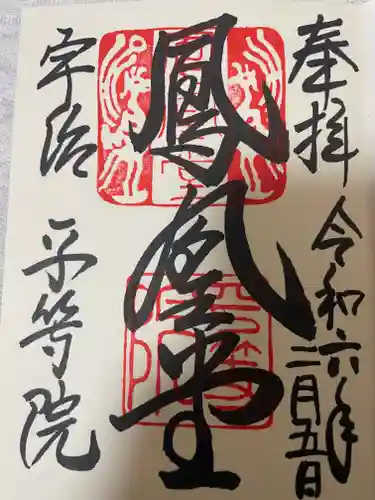 奉拝 令和六年二月五日
鳳凰堂
宇治 平等院